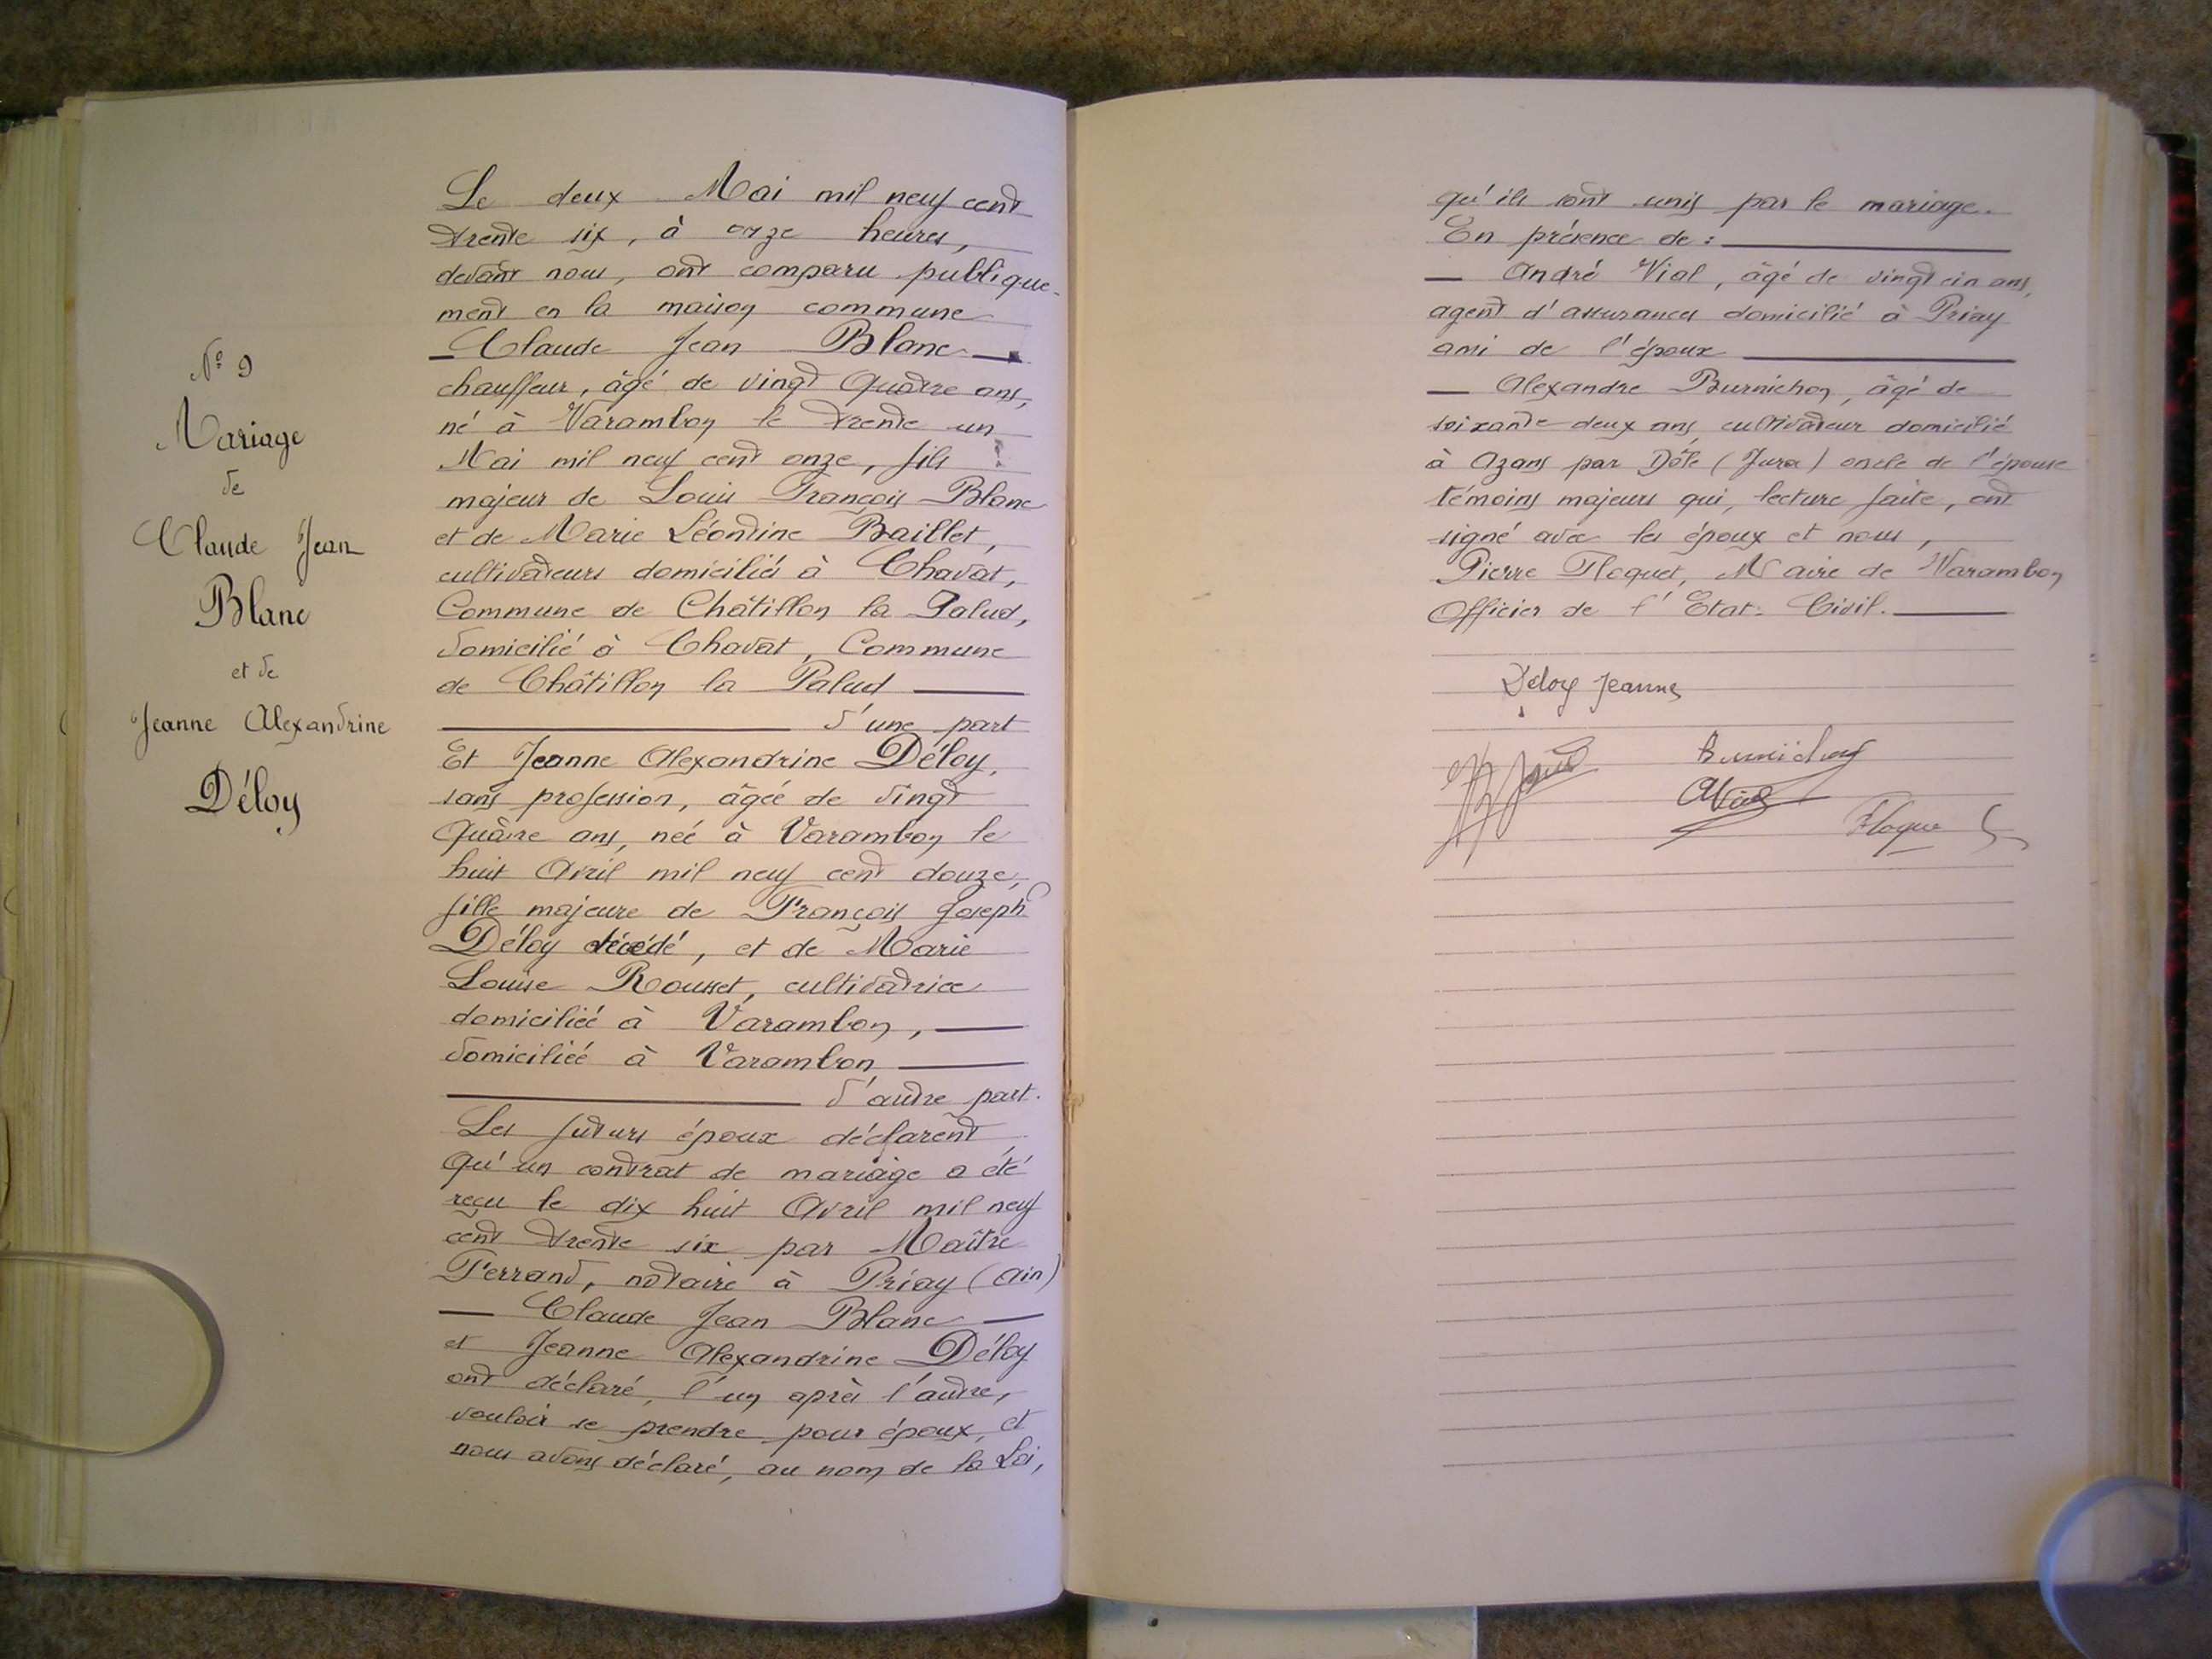 N° 9
Mariage
de
Claude Jean
Blanc
et de
Jeanne Alexandrine
Déloy
Le deux Mai mil neuf cent
trente six, à onze heures,
devant nous, ont comparu publique-
ment en la maison commune
Claude Jean Blanc
chauffeur, âgé de vingt quatre ans,
né à Varambon le trente un
Mai mil neuf cent onze, fils
majeur de Louis François Blanc
et de Marie Léontine Baillet,
cultivateurs domiciliés à Chavat,
Commune de Châtillon la Palud,
domicilié à Chavat, Commune
de Châtillon la Palud
d'une part
Et Jeanne Alexandrine Déloy,
sans profession, âgée de vingt
quatre ans, née à Varambon le
huit Avril mil neuf cent douze,
fille majeure de François Joseph
Déloy décédé, et de Marie
Louise Rousset, cultivatrice
domiciliée à Varambon,
domiciliée à Varambon
d'autre part.
Les futurs époux déclarent
qu'un contrat de mariage a été
reçu le dix huit Avril mil neuf
cent trente six par Maître
Ferrand, notaire à Priay (Ain)
Claude Jean Blanc
et Jeanne Alexandrine Déloy
ont déclaré, l'un après l'autre,
vouloir se prendre pour époux, et
nous avons déclaré, au nom de la Loi,
qu'ils sont unis par le mariage.
En présence de :
André Vial, âgé de vingt cin ans,
agent d'assurances domicilié à Priay
ami de l'époux
Alexandre Burnichon, âgé de
soixante deux ans, cultivateur domicilié
à Azans par Dôle (Jura) oncle de l'épouse
témoins majeurs qui, lecture faite, ont
signé avec les époux et nous,
Pierre Floquet, Maire de Varambon
Officier de l'Etat-Civil.
Déloy Jeanne
Burnichon
AVial
Floquet